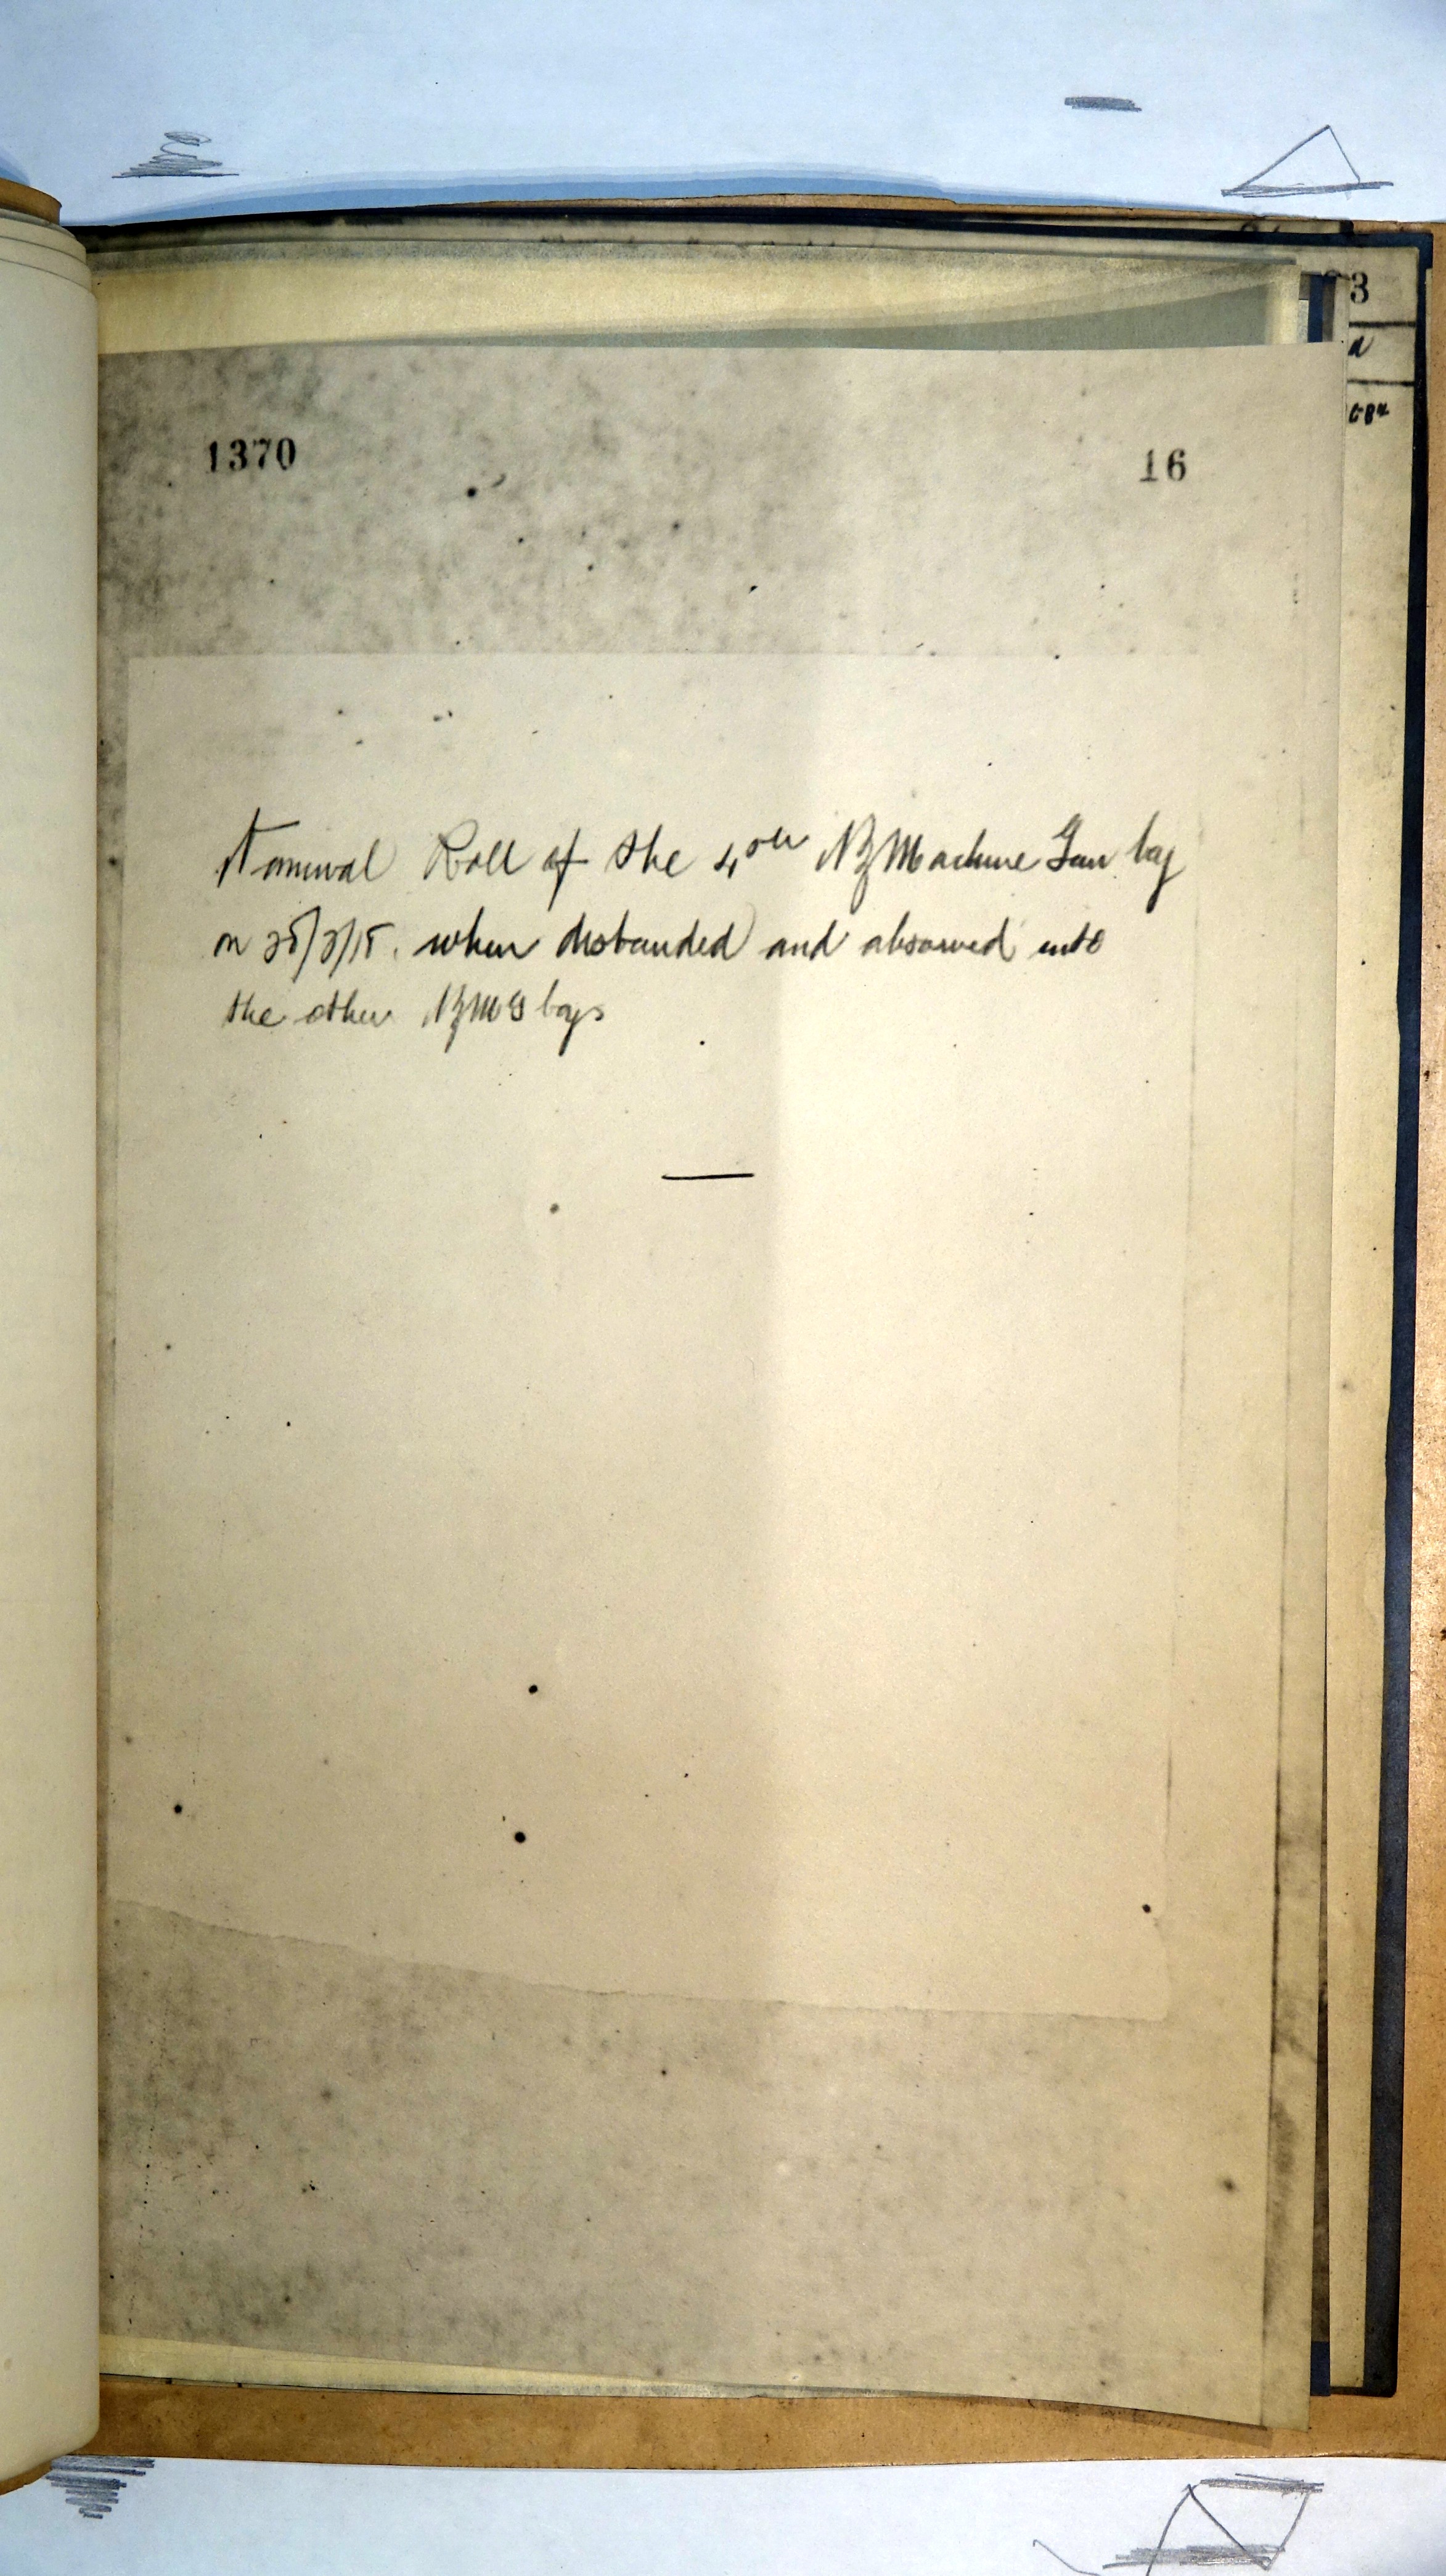 3
1370
16
Nominal Roll of the 4th NZ Machine Gun Coy
on when disbanded and absorved into
the other NZMG Coys